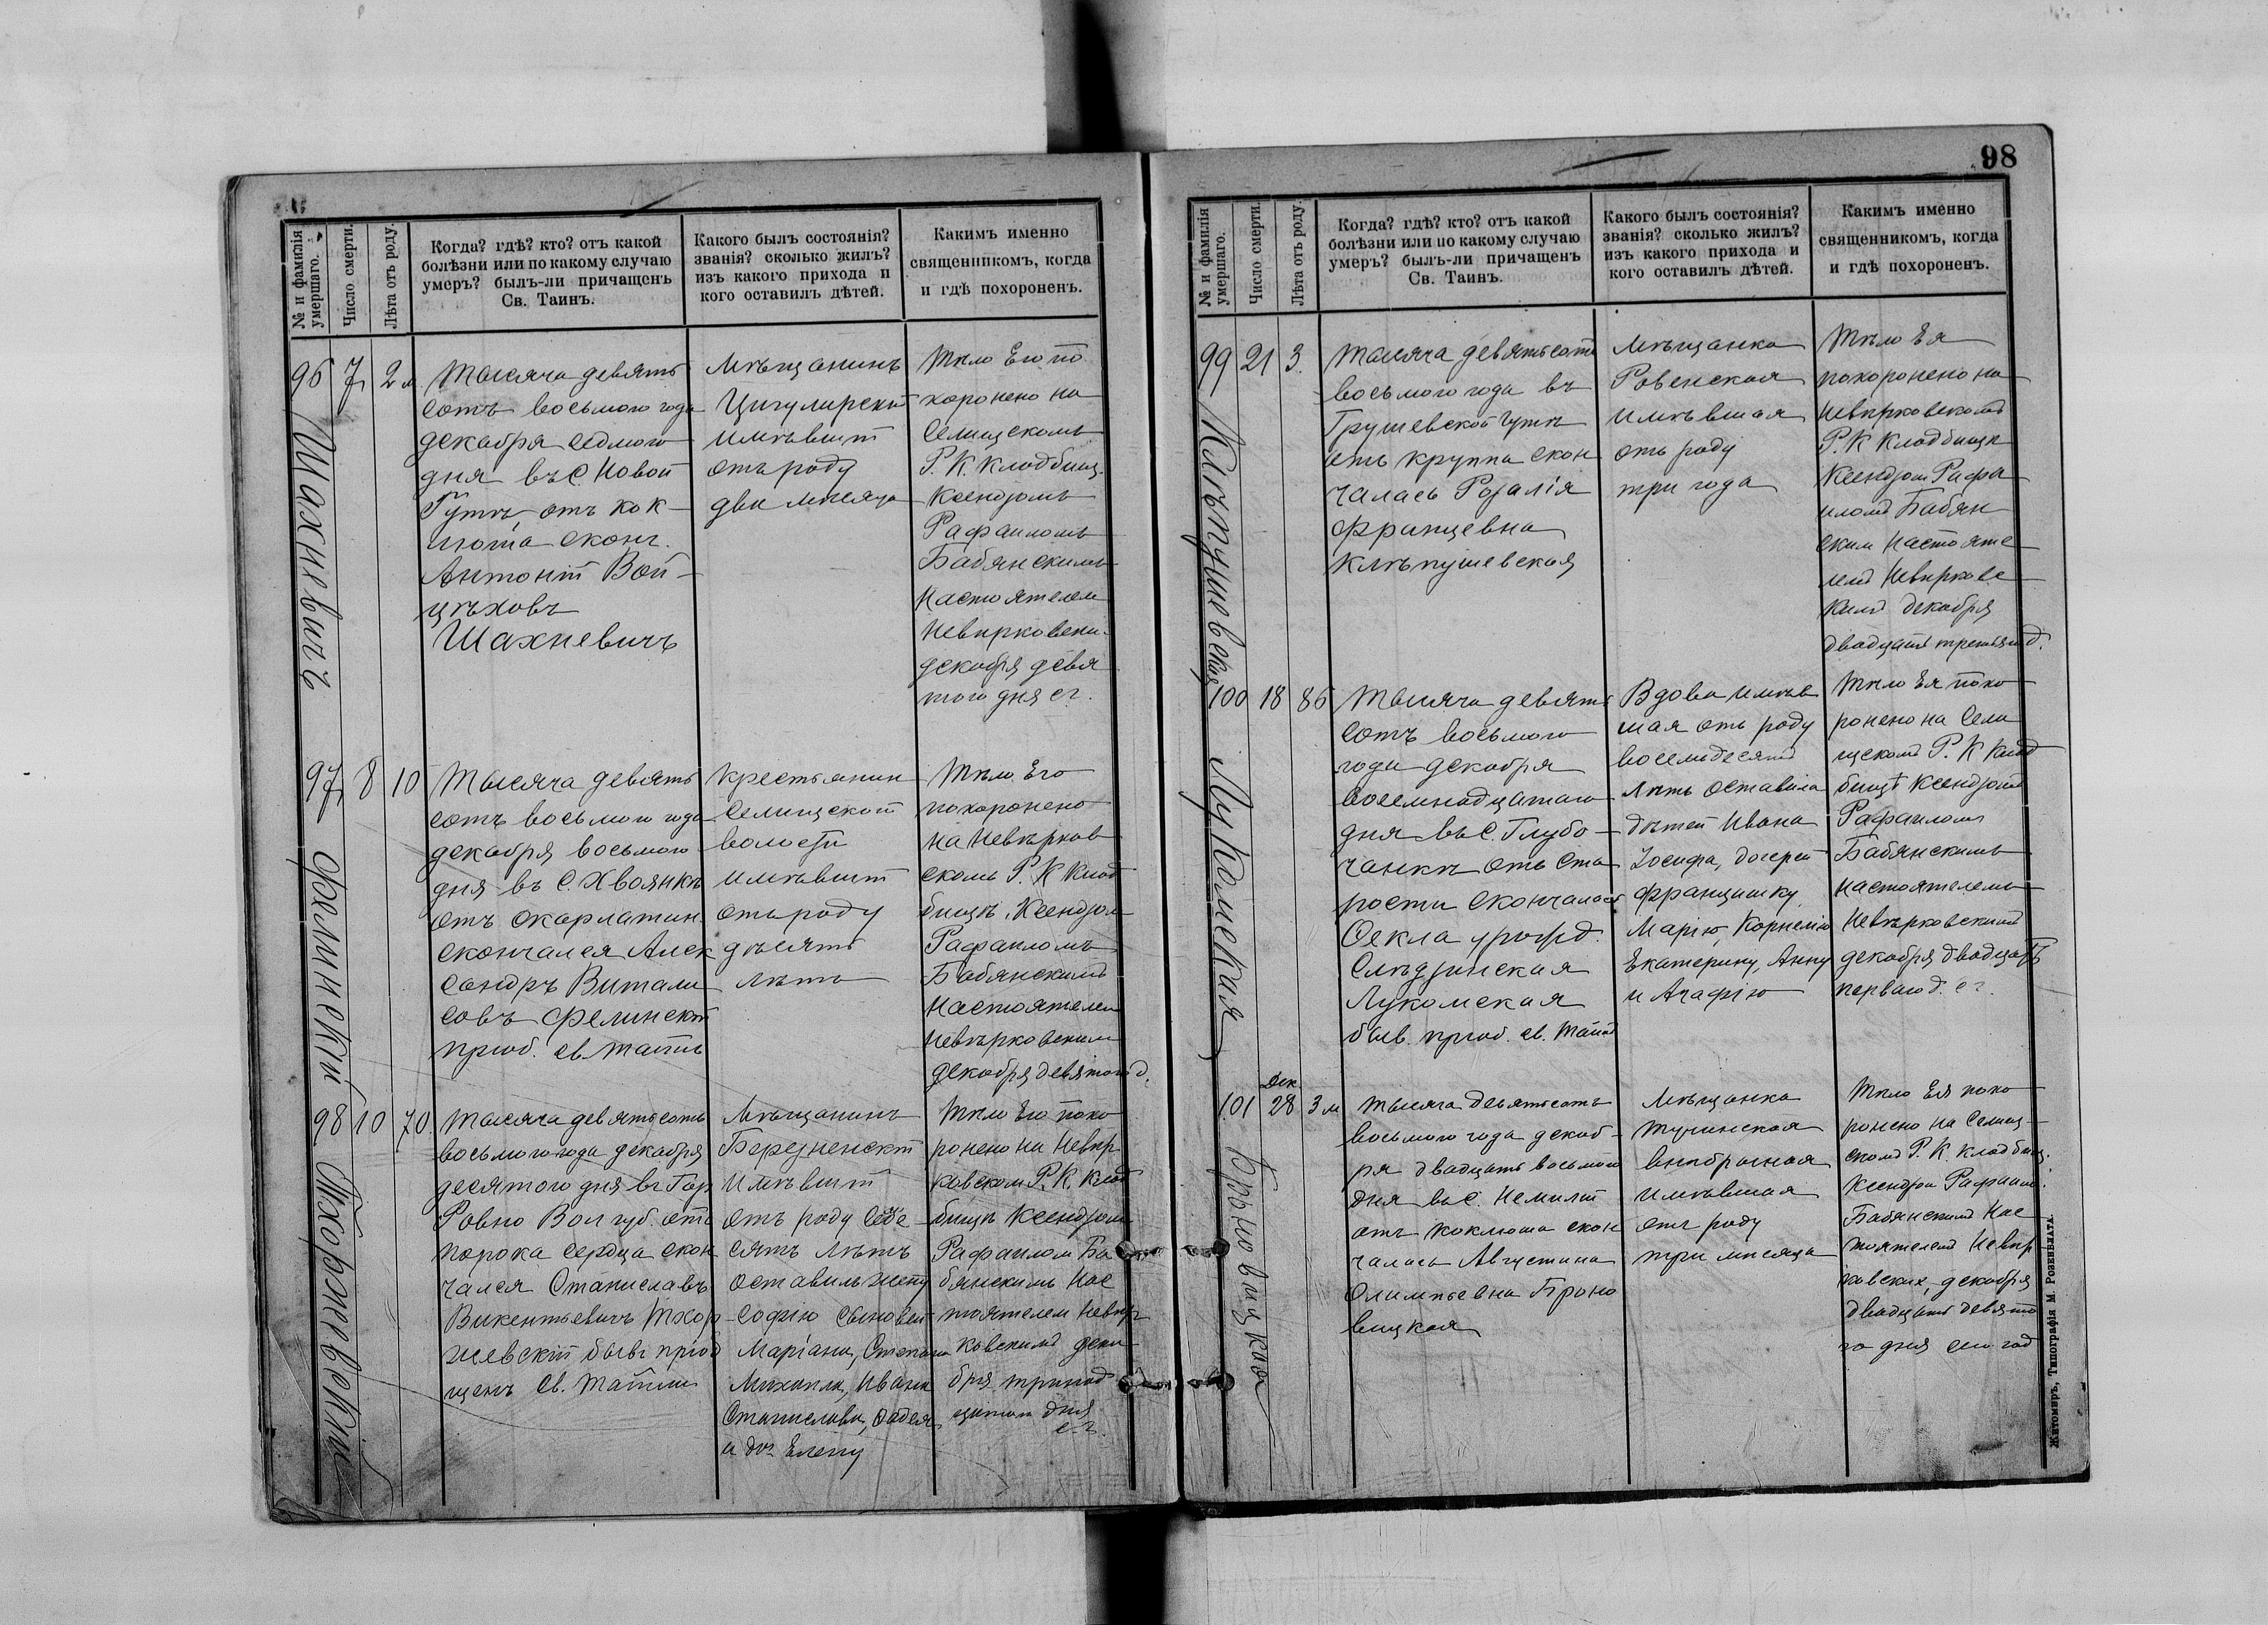 № и фамилія умершаго.
Число смерти.
Лѣта отъ роду.
Когда? гдѣ? кто? отъ какой
болѣзни или по какому случаю
умеръ? былъ-ли причащенъ
Св. Таинъ.
Какого былъ состоянія?
званія? сколько жилъ?
изъ какого прихода и
кого оставилъ дѣтей.
Какимъ именно
священникомъ, когда
и гдѣ похороненъ.
96
Шахневичъ
7
2 м.
Тысяча девять
сотъ восьмого года
декабря седмого
дня въ С. Новой
Гутѣ, отъ кок-
люша сконч.
Антоній Вой-
цѣховъ
Шахневичъ
Мѣщанинъ
имѣвшій
отъ роду
два мѣсяца
Тѣло Его по
хоронено на
Селищскомъ
Р. К. кладбищ.
Ксендзомъ
Рафаиломъ
Бабянскимъ
Настоятелем
Невирковски.
декабря девя
того дня с. г.
97
Фелинскій
8
10
Тысяча девять
сотъ восьмого года
декабря восьмого
дня въ С. Хвоянкѣ
отъ скарлатин.
скончался Алек
сандръ Витали
совъ Фелинскій
приоб. св. тайнъ
крестьянин
Селищской
волости
имѣвшій
отъ роду
дѣсять
лѣтъ
Тѣло Его
похоронено
на Невѣрков
скомъ Р. К Клад
бищѣ, Ксендзом
Рафаиломъ
Бабянскимъ
Настоятелем
Невѣрковским
декабря девятого д.
98
Тхоржевскій
10
70.
Тысяча девятьсотъ
восьмого года декабря
десятого дня въ Гор
Ровно Вол губ. отъ
порока сердца скон
чался Станиславъ
Викентьевичъ Тхор
жевскій бывъ приоб
щенъ Св. Тайнъ
Мѣщанинъ
Березненскій
Имѣвшій
отъ роду седе
сятъ лѣтъ
оставилъ жену
Софію сыновей
Маріана, Степана
Михаила, Ивана
Станислава, Фадея
и доч Елену
Тѣло Его похо
ронено на Невир
ковском Р. К. Клад
бищѣ Ксендзом
Рафаилом Ба
бянскимъ Нас
тоятелем Невир
ковскимъ дека
бря тринад
цатого дня
с. г.
98
№ и фамилія умершаго.
Число смерти.
Лѣта отъ роду.
Когда? гдѣ? кто? отъ какой
болѣзни или по какому случаю
умеръ? былъ-ли причащенъ
Св. Таинъ.
Какого былъ состоянія?
званія? сколько жилъ?
изъ какого прихода и
кого оставилъ дѣтей.
Какимъ именно
священникомъ, когда
и гдѣ похороненъ.
99
21
3.
Тысяча девятьсотъ
восьмого года въ
Грушевской Гутѣ
отъ круппа скон
чалась Розалія
Францевна
Клѣпушевская
Мѣщанка
Ровенская
имѣвшая
отъ роду
три года
Тѣло Ея
похоронено на
Невирковскомъ
Р. К Кладбищѣ
Ксендзом Рафа
иломъ Бабян
скимъ Настояте
лемъ Невирковс
кимъ декабря
двадцать третьяго д.
100
Лукомская
18
86
Тысяча девять
сотъ восьмого
года декабря
восемнадцатого
дня въ С. Глубо-
чанкѣ отъ ста
рости скончалась
Фекла урожд.
Слѣдзинская
Лукомская
быв. приоб. св. Тайнъ
Вдова имѣв
шая отъ роду
восемьдесятъ
лѣтъ оставила
дѣтей Ивана
Іосифа, дочерей
Францишку,
Марію, Корнелію
Екатерину, Анну
и Агафію
Тѣло Ея похо
ронено на Сели
щскомъ Р. К Клад
бищѣ Ксендзомъ
Рафаиломъ
Бабянскимъ
настоятелемъ
Невѣрковскимъ
декабря двадцать
перваго д. с г.
101
Броновицкая
Дек.
28
3 м
Тысяча девятьсотъ
восьмого года декаб-
ря двадцать восьмого
дня въ С. Немиліи
отъ коклюша скон
чалась Августина
Олимпьевна Броно
вицкая
Мѣщанка
Тучинская
имѣвшая
отъ роду
три мѣсяца
Тѣло Ея похо
ронено на Селищ-
скомъ Р. К. кладбищ.
Ксендзом Рафаилом.
Бабянскимъ Нас
тоятелемъ Невир
ковских, декабря
двадцать девято
го дня сего год
Житомиръ, Типографія М. Розенблата.